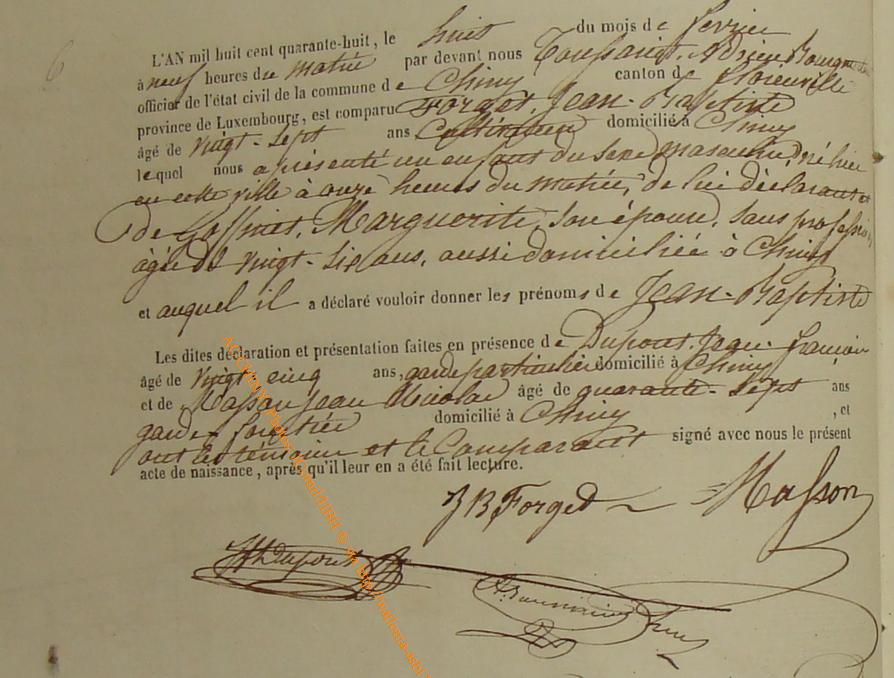 6
L'AN mil huit cent quarante-huit, le huit du mois de fevrier
à neuf heures de matin par devant nous Toussaint, Adrien
officier de l'état civil de la commune de Chiny canton de Florenville
province de Luxembourg, est comparu Forget, Jean-Baptiste
âgé de vingt-sept ans Cultivateur domicilié à Chiny
lequel nous a présenté un enfant du sexe masculin, né hier
en cette ville à onze heures du matin, de lui déclarant et
de Goffinet, Marguerite, son épouse, sans profession
âgée de vingt-six ans, aussi domiciliée à Chiny
et auquel il a déclaré vouloir donner les prénoms de Jean-Baptiste
Les dites déclaration et présentation faites en présence de Dupont, Jean françois
âgé de vingt-cinq ans, garde particulier domicilié à Chiny
et de Massan Jean Nicolas âgé de quarante-sept ans
garde forestier domicilié à Chiny , et
ont les temoins et le Comparant signé avec nous le présent
acte de naissance, après qu'il leur en a été fait lecture.
JB Forget Masson
Dupont